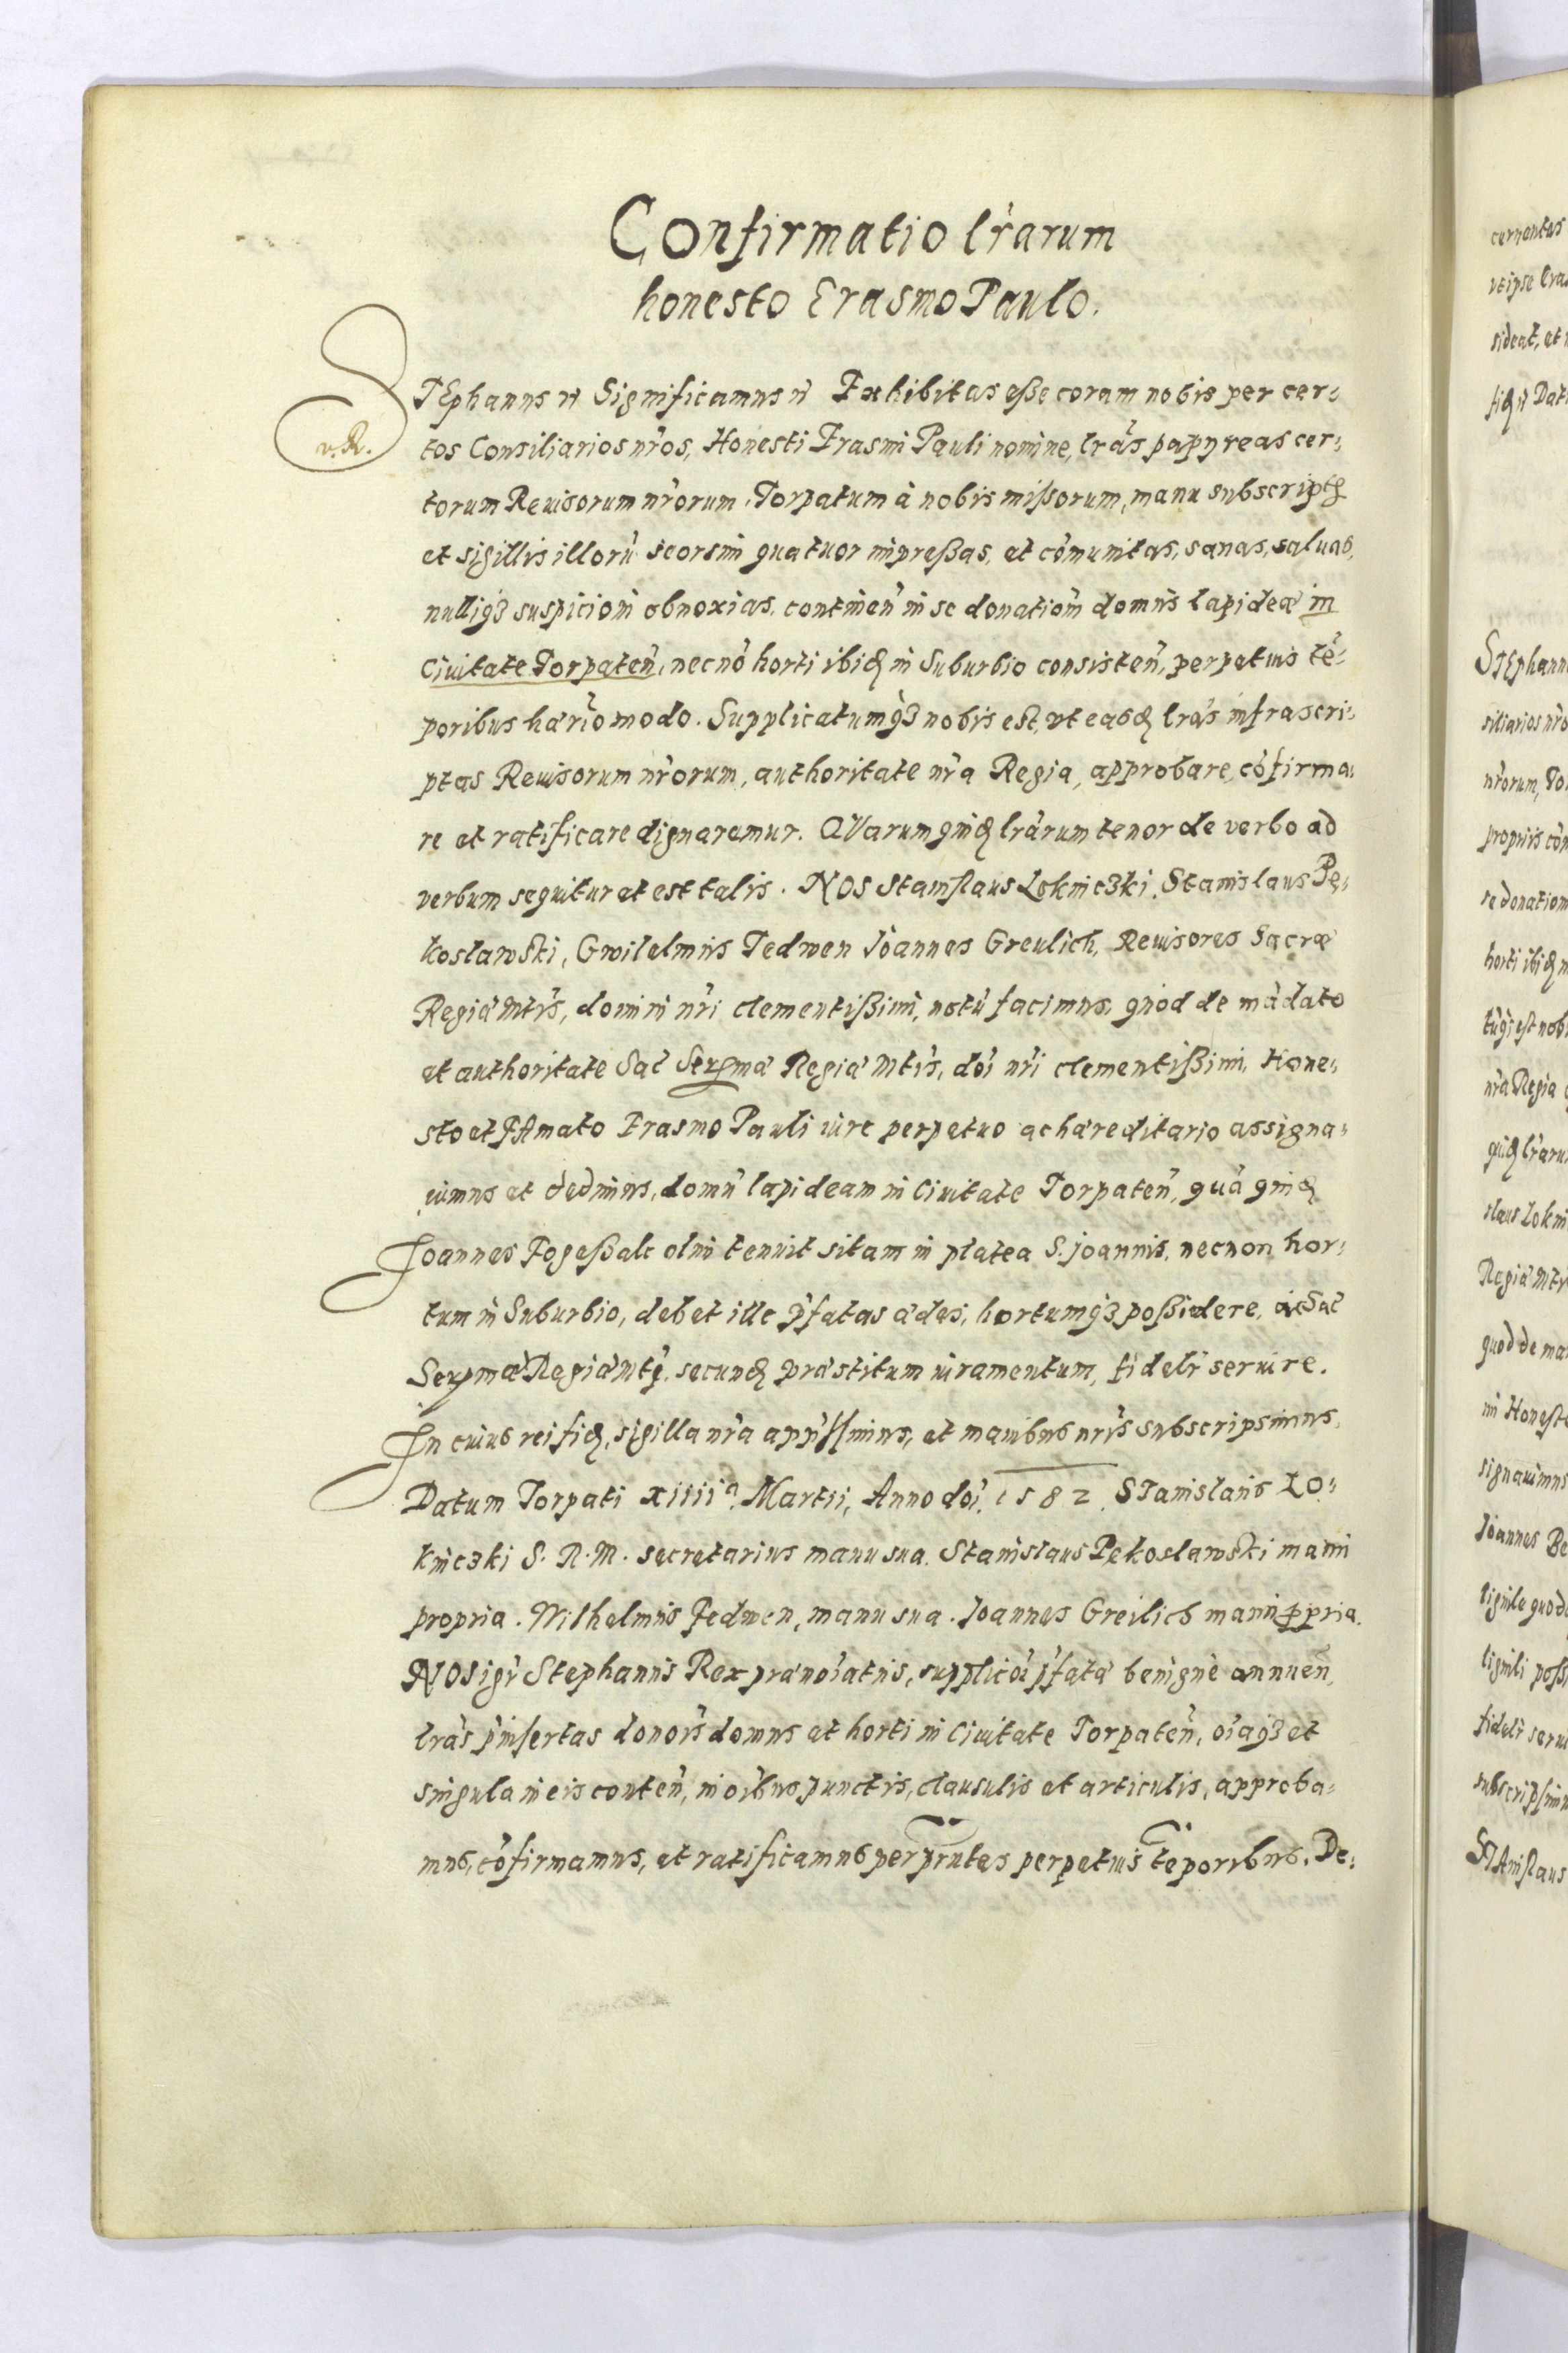 Confirmatio lrarum
honesto Erasmo Paulo.
STEphanus &c Significamus &c Exhibitas eße coram nobis per cer:
v. R.
tos Consiliarios nros, Honesti Erasmi Pauli nomine, lras papyreas cer:
torum Reuisorum nrorum, Torpatum à nobis mißorum, manu subscriptas
et sigillis illorũ seorsim quatuor impreßas, et cõmunitas, sanas, saluas,
nulliq3 suspicioni obnoxias, continen̄ in se donationem domus lapideæ in
Ciuitate Torpaten̄, necnõ horti ibid in Suburbio consisten̄, perpetuis tẽ:
poribus hærio modo. Supplicatumq3 nobis est, vt easd lras infrascri:
ptas Reuisorum nrorum, authoritate nra Regia, approbare, cõfirma:
re et ratificare dignaremur. QVarum quid lrarum tenor de verbo ad
verbum sequitur et est talis. NOS Stanislaus Lokniczki, Stanislaus Pę:
koslawski, Gwilelmus Tedwen Joannes Greulich, Reuisores Sacræ
Regiæ Mtis, domini nri clementißimi, notũ facimus, quod de mãdato
et authoritate Sac Sermæ Regiæ Mtis, doi nri clementißimi, Hone:
sto et FAmato Erasmo Pauli iure perpetuo ac hæreditario assigna:
uimus et dedimus, domũ lapideam in Ciuitate Torpaten̄, quã quid
Joannes Fogeßalc olim tenuit sitam in platea S. Joannis, necnon hor:
tum in Suburbio, debet ille p̄fatas ædes, hortumq3 poßidere, ac Sac
Sermæ Regiæ Mti, secund præstitum iuramentum, fidelr seruire.
In cuius rei fid, sigilla nra appressimus, et manibus nris subscripsimus.
Datum Torpati xiiiia. Martii, Anno doi. 1582. STanislaus Lo:
kniczki S. R. M. secretarius manu sua. Stanislaus Pekoslawski manu
propria. Wilhelmus Tedwen, manu sua. Joannes Greilich manu ꝓpria.
NOS igr Stephanus Rex prænoiatus, supplicoi p̄fatæ benignè annuen,
lras p̄insertas donois domus et horti in Ciuitate Torpaten̄, oiaq3 et
singula in eis conten̄, in oibus punctis, clausulis et articulis, approba:
mus, cõfirmamus, et ratificamus per prntes perpetuis tẽporibus. De: